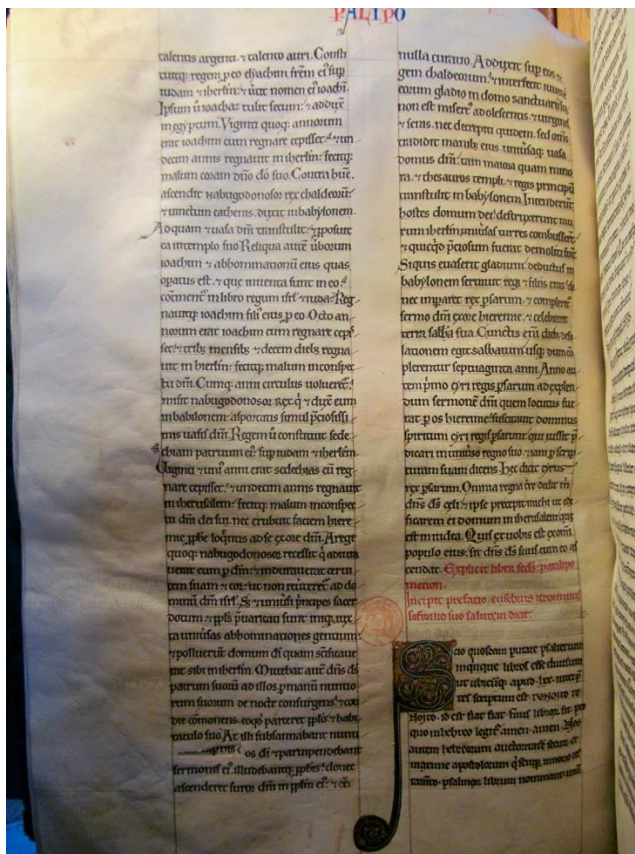 PALIPO
talentis argenti. ⁊ talento auri. Consti
tuitq; regem p eo eliachim frēm ei᷒ sup
iudam ⁊ ihrlm̄. ⁊ uertit nomen ei᷒ ioachī.
Ipsum ū ioachaz tulit secum. ⁊ adduxit
in egyptum. Viginti quoq; annorum
erat ioachim cum regnare cepisset. ⁊ un
decim annis regnauit in ihrlm̄. fecitq;
malum coram dn̄o dō suo. Contra hūc
ascendit nabugodonosor rex chaldeorū.
⁊ uinctum cathenis. duxit in babylonem.
Ad quam ⁊ uasa dn̄i transtulit. ⁊ posuit
ea in templo suo. Reliqua autē ūborum
ioachim ⁊ abhominationū eius quas
opatus est. ⁊ que inuenta sunt in eo.
cōtinent᷑ in libro regum isrl̄. ⁊ iuda. Reg
nauitq; ioachim fili᷒ eius p eo. Octo an
norum erat ioachim cum regnare cepis
set. ⁊ trib; mensib; ⁊ decem dieb; regna
uit in ihrlm̄. fecitq; malum in conspec
tu dn̄i. Cumq; anni circulus uolueret᷑.
misit nabugodonosor rex. q̇ ⁊ duxēt eum
in babilonem. asportatis simul p̄ciosissi
mis uasis dn̄i. Regem ū constituit sede
chiam patruum ei᷒. sup iudam ⁊ ihrlēm.
Viginti ⁊ uni᷒ anni erat sedechias cū reg
nare cepisset. ⁊ undecim annis regnauit
in iherusalem. fecitq; malum in conspec
tu dn̄i dei sui. nec erubuit faciem hiere
mie pph̄e loq̄ntis ad se ex ore dn̄i. A rege
quoq; nabugodonosor recessit q̇ adiura
uerat eum p dn̄m. ⁊ indurauerat ceruī
cem suam ⁊ cor. ut non reūteret᷑ ad do
minū dm̄ isrl̄. Sȝ ⁊ uniūsi p̄ncipes sacer
dotum ⁊ ppl̄s p̄uaricati sunt iniq̄. iux
ta uniūsas abhominationes gentium.
⁊ polluerūt domum dn̄i quam sc̄ificaue
rat sibi in ihrlm̄. Mittebat autē dn̄s d̄s
patrum suorū ad illos. p manū nuntio
rum suorum de nocte consurgens. ⁊ coti
die cōmonens. eo qd̄ parceret pplo ⁊ habi
taculo suo. At illi subsannabant nunti
os dī ⁊ paruipendebant
sermones ei᷒. illudebantq; pph̄is. donec
ascenderet furor dn̄i in pplm̄ ei᷒. ⁊ eēt
nulla curatio. Adduxit sup eos re
gem chaldeorum. ⁊ interfecit iuuenes
eorum gladio in domo sanctuarii sui.
non est misert᷒ adolescentis. ⁊ uirginis
⁊ senis. nec decrepiti quidem. sed om̄s
tradidit manib; eius. uniūsaq; uasa
domus dn̄i. tam maiora quam mino
ra. ⁊ thesauros templi. ⁊ regis ⁊ principū
transtulit in babylonem. Incenderūt
hostes domum dei. destruxerunt mu
rum ihrlm̄. uniūsas turres combusserūt
⁊ quicq̇d p̄ciosum fuerat demoliti sunt.
Siquis euaserat gladium. deductus in
babylonem seruiuit regi ⁊ filiis eius. do
nec imparet rex psarum. ⁊ complerēt᷑
sermo dn̄i ex ore hieremie. ⁊ celebrarēt
terra sabb̄a sua. Cunctis eni dieb; deso
lationem egit sabbatum usq; dum cō
plerentur septuaginta anni. Anno au
tem p̄mo cyri regis psarum ad explen
dum sermonem dn̄i quem locutus fue
rat p os hieremie. suscitauit dominus
spiritum cyri regis psarum. qui iussit p̄
dicari in uniūso regno suo ⁊iam p scrip
turam suam dicens. Hec dicit cyrus
rex psarum. Omnia regna tr̄e dedit m̄
dn̄s d̄s celi. ⁊ ipse precepit michi ut edi
ficarem ei domum in iherusalem que
est in iudea. Quis ex uobis est ex om̄i
populo eius. sit dn̄s d̄s suus cum eo ⁊ as
cendat. Explicit liber sec̄ds paralipo
menon.
Incipit prefatio. eusebius ieronimus
sofronio suo salutem dicit.
Scio quosdam putare psalterium
in quinque libros esse diuisum
ut ubicūq; apud .lxx. interp̄
tes scriptum est
id est fiat fiat. finis libror̄ sit. pro
quo in hebreo legit᷑ amen. amen. Nos
autem hebreorum auctoritatē secuti. ⁊
maxime apostolorum q̇ semp in nouo tes
tamto. psalmor̄ librum nominant. unū